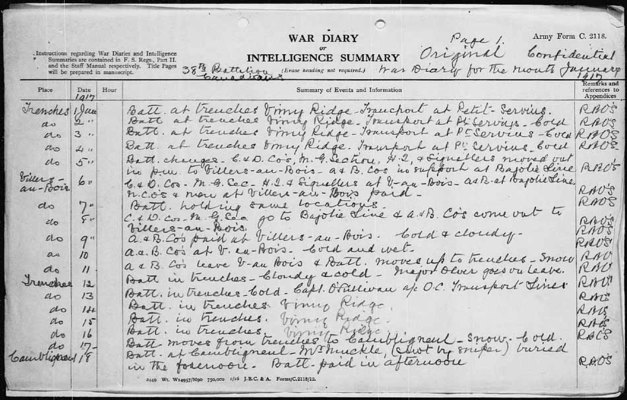 Page 1.
WAR DIARY
or
INTELLIGENCE SUMMARY
(Erase heading not required.)
Army Form C. 2118.
Original Confidential
Instructions regarding War Diaries and Intelligence
Summaries are contained in F. S. Regs., Part II.
and the Staff Manual respectively. Title Pages
will be prepared in manuscript.
38th Battalion
Canadians
War Diary for the month January
1917
Place Date Hour Summary of Events and Information Remarks and references to Appendices
1917
Trenches 1 Jan Batt. at trenches Vimy Ridge - Transport at Petit-Servins. RAOS
do 2 " Batt. at trenches Vimy Ridge - Transport at Pt Servins - Cold RAOS
do 3 " Batt. at trenches Vimy Ridge - Transport at Pt Servins - Cold RAOS
do 4 " Batt. at trenches Vimy Ridge. Transport at Pt Servins. Cold RAOS
do 5 " Batt. changes. C. & D. Co's, M.G. Section, H.Q. & Signallers moved out
in p.m. to Villers-au-Bois - A & B. Co's in support at Bajolle Line RAOS
Villers-au-Bois 6 C. & D. Cos - M.G. Sec - H.Q & Signallers at V-au-Bois - A & B at Bajolle Line.
N.C.O's & men at Villers-au-Bois paid - RAOS
do 7 " Batt. holding same locations. RAOS
do 8 " C. & D. Co's - M.G. Sec go to Bajolle Line & A & B. Co's come out to
Villers-au-Bois RAOS
do 9 " A & B. Co's paid at Villers-au-Bois. Cold & cloudy - RAOS
do 10 A & B. Co's at V. au-Bois - Cold and wet. RAOS
do 11 A & B. Co's leave V-au Bois & Batt. moves up to trenches - Snow RAOS
Trenches 12 Batt in trenches - Cloudy & cold - Major goes on leave. RAOS
do 13 Batt. in trenches - Cold - Capt. O'Sullivan a/c O.C. Transport Lines RAOS
do 14 Batt. in trenches Vimy Ridge RAOS
do 15 Batt. in trenches. Vimy Ridge. RAOS
do 16 Batt. in trenches, Vimy Ridge. RAOS
do 17 - Batt moves from trenches to Cambligneul - Snow. Cold. RAOS
Cambligneul 18 Batt. at Cambligneul - (shot by sniper) buried
in the forenoon. Batt. paid in afternoon RAOS
J.B.C. & A. Forms/C.2118/12.